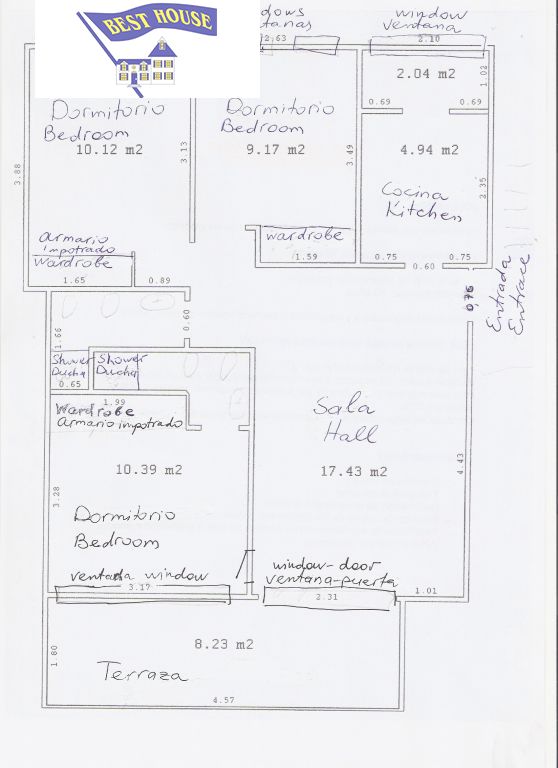 BEST HOUSE
window
ventana
2.63
2.10
2.04 m2
1.02
0.69
0.69
Dormitorio
Bedroom
10.12 m2
3.13
3.88
Dormitorio
Bedroom
9.17 m2
3.49
4.94 m2
2.35
Cocina
Kitchen
Armario
impotrado
Wardrobe
wardrobe
1.59
0.75
0.60
0.75
1.65
0.89
0.76
Entrada
Entrace
1.66
0.60
Shower
Ducha
Shower
Ducha
0.65
1.99
Wardrobe
Armario impotrado
Sala
Hall
10.39 m2
17.43 m2
4.43
3.28
Dormitorio
Bedroom
ventada window
3.17
window-door
ventana-puerta
2.31
1.01
8.23 m2
1.80
Terraza
4.57